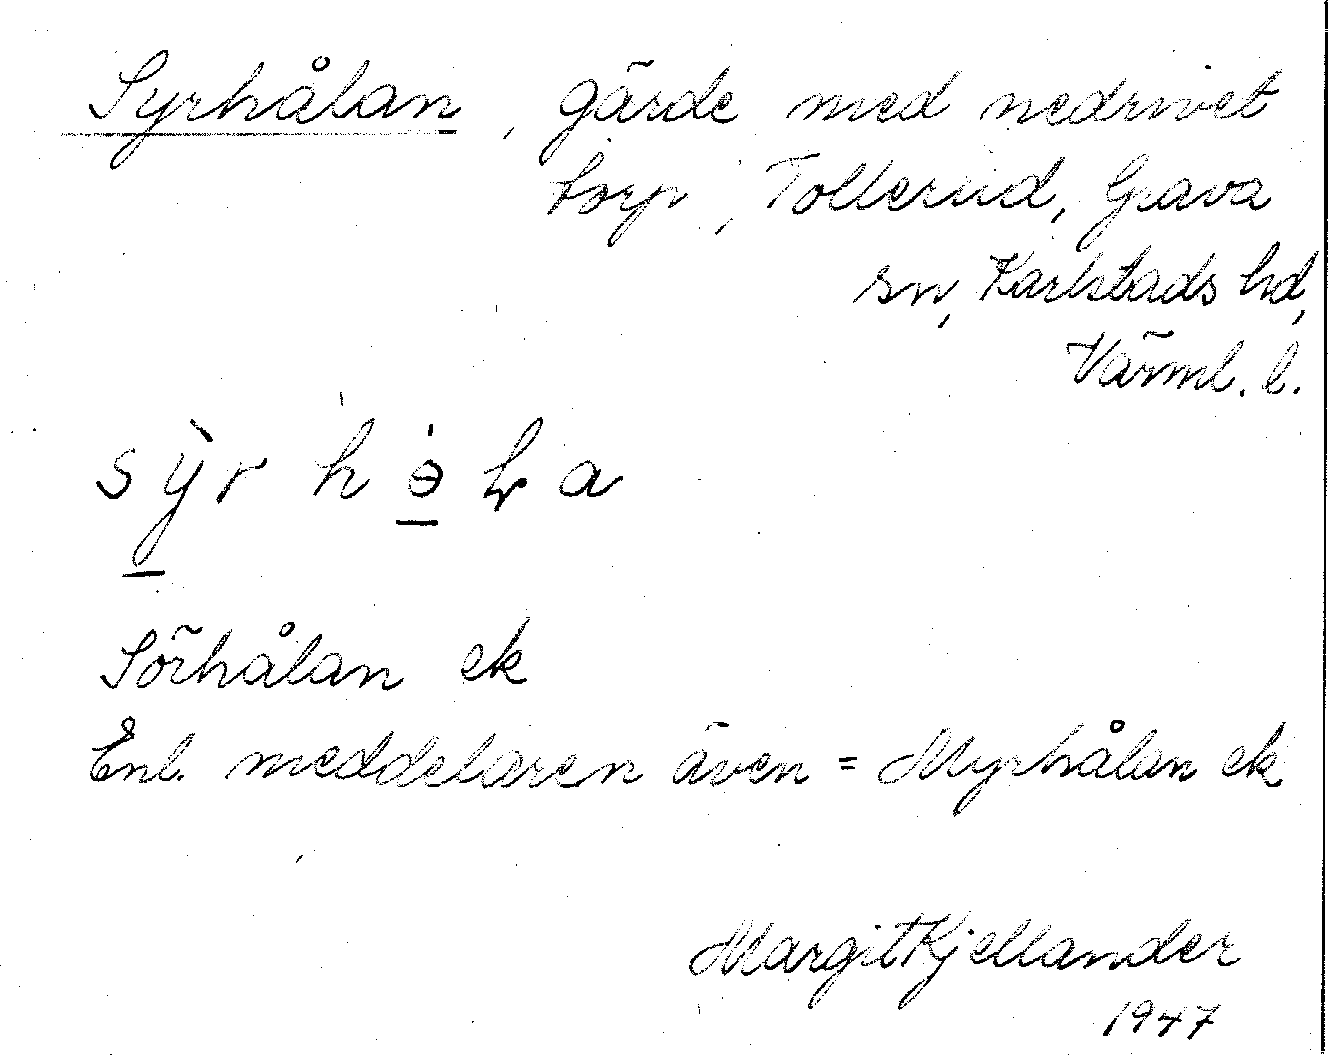 Syrhålan, gärde med nedrivet
torp, Tollerud, Grava
sn, Karlstads hd,
Värml. l.
sỳrhɵ̀ḷa
Sörhålan ek
Enl. meddelaren även = Myrhålan ek
Margit Kjellander
1947